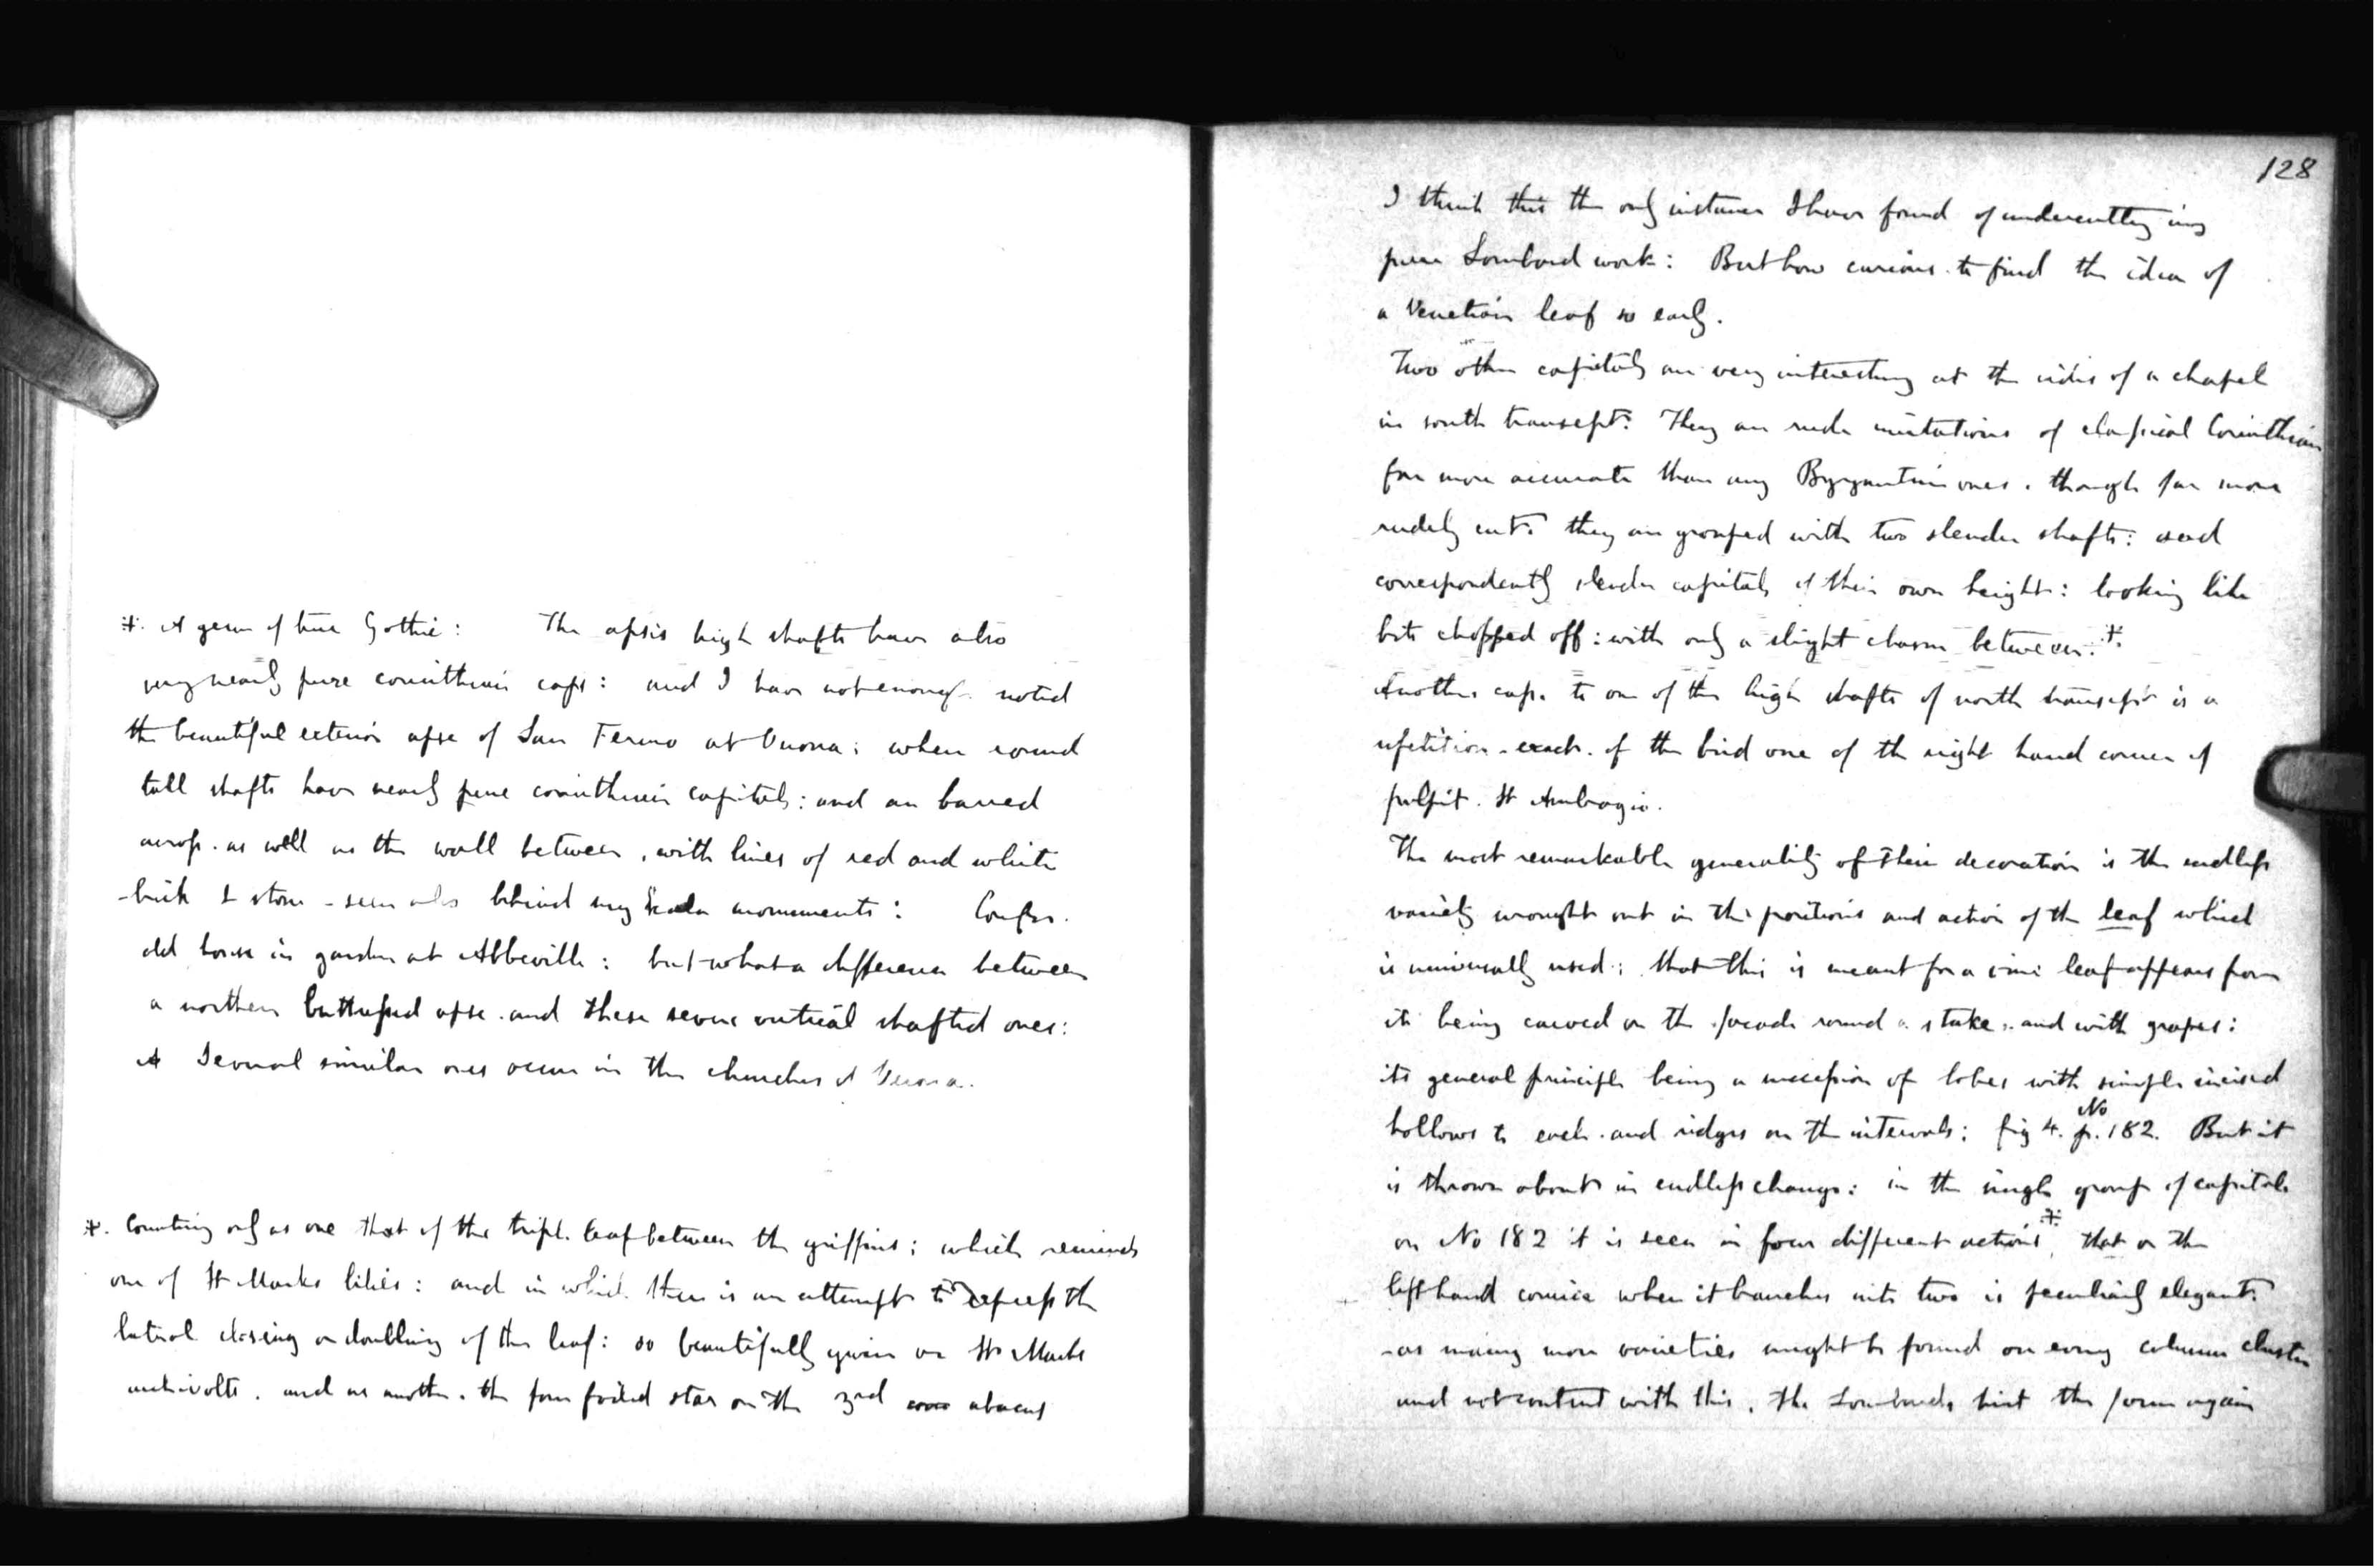 ‡. A germ of true Gothic: The apsis high shafts have also
very nearly pure corinthian caps: and I have not enough noted
the beautiful exterior apse of San Fermo at Verona: where round
tall shafts have nearly pure corinthian capitals: and are barred
across. as well as the wall between, with lines of red and white
brick & stone - seen also behind my Scala monuments: Confer.
old house in garden at Abbeville: but what a difference between
a northern buttressed apse. and these severe vertical shafted ones:
Several similar ones occur in the churches of Verona.
‡. Counting only as one that of the triple leaf between the griffins; which reminds
one of St Marks lilies: and in which there is an attempt to express the
lateral closing or doubling of the leaf: so beautifully given on St Marks
archivolts. and as another. the four foiled star on the 3rd abacus
128
I think this the only instance I have found of undercutting in
pure Lombard work: But how curious to find the idea of
a Venetian leaf so early.
Two other capitals are very interesting at the sides of a chapel
in south transept. They are rude imitations of classical Corinthian
far more accurate than any Byzantine ones. though far more
rudely cut. they are grouped with two slender shafts: and
correspondently slender capitals of their own height: looking like
bits chopped off: with only a slight chasm between. ‡.
Another cap. to one of the high shafts of north transept is a
repetition - exact. of the bird one of the right hand corner of
pulpit. St Ambrogio.
The most remarkable generality of their decoration is the endless
variety wrought out in the positions and action of the leaf which
is universally used; that this is meant for a vine leaf appears from
its being carved on the facade round a stake. and with grapes:
its general principle being a succession of lobes with simple incised
hollows to each. and ridges on the intervals; fig 4. p. No 182. But it
is thrown about in endless change: in the single group of capitals
on No 182 it is seen in four different actions ‡, that on the
left hand cornice where it branches into two is peculiarly elegant.
- as many more varieties might be found on every column cluster
and not content with this, the Lombards hint the form again